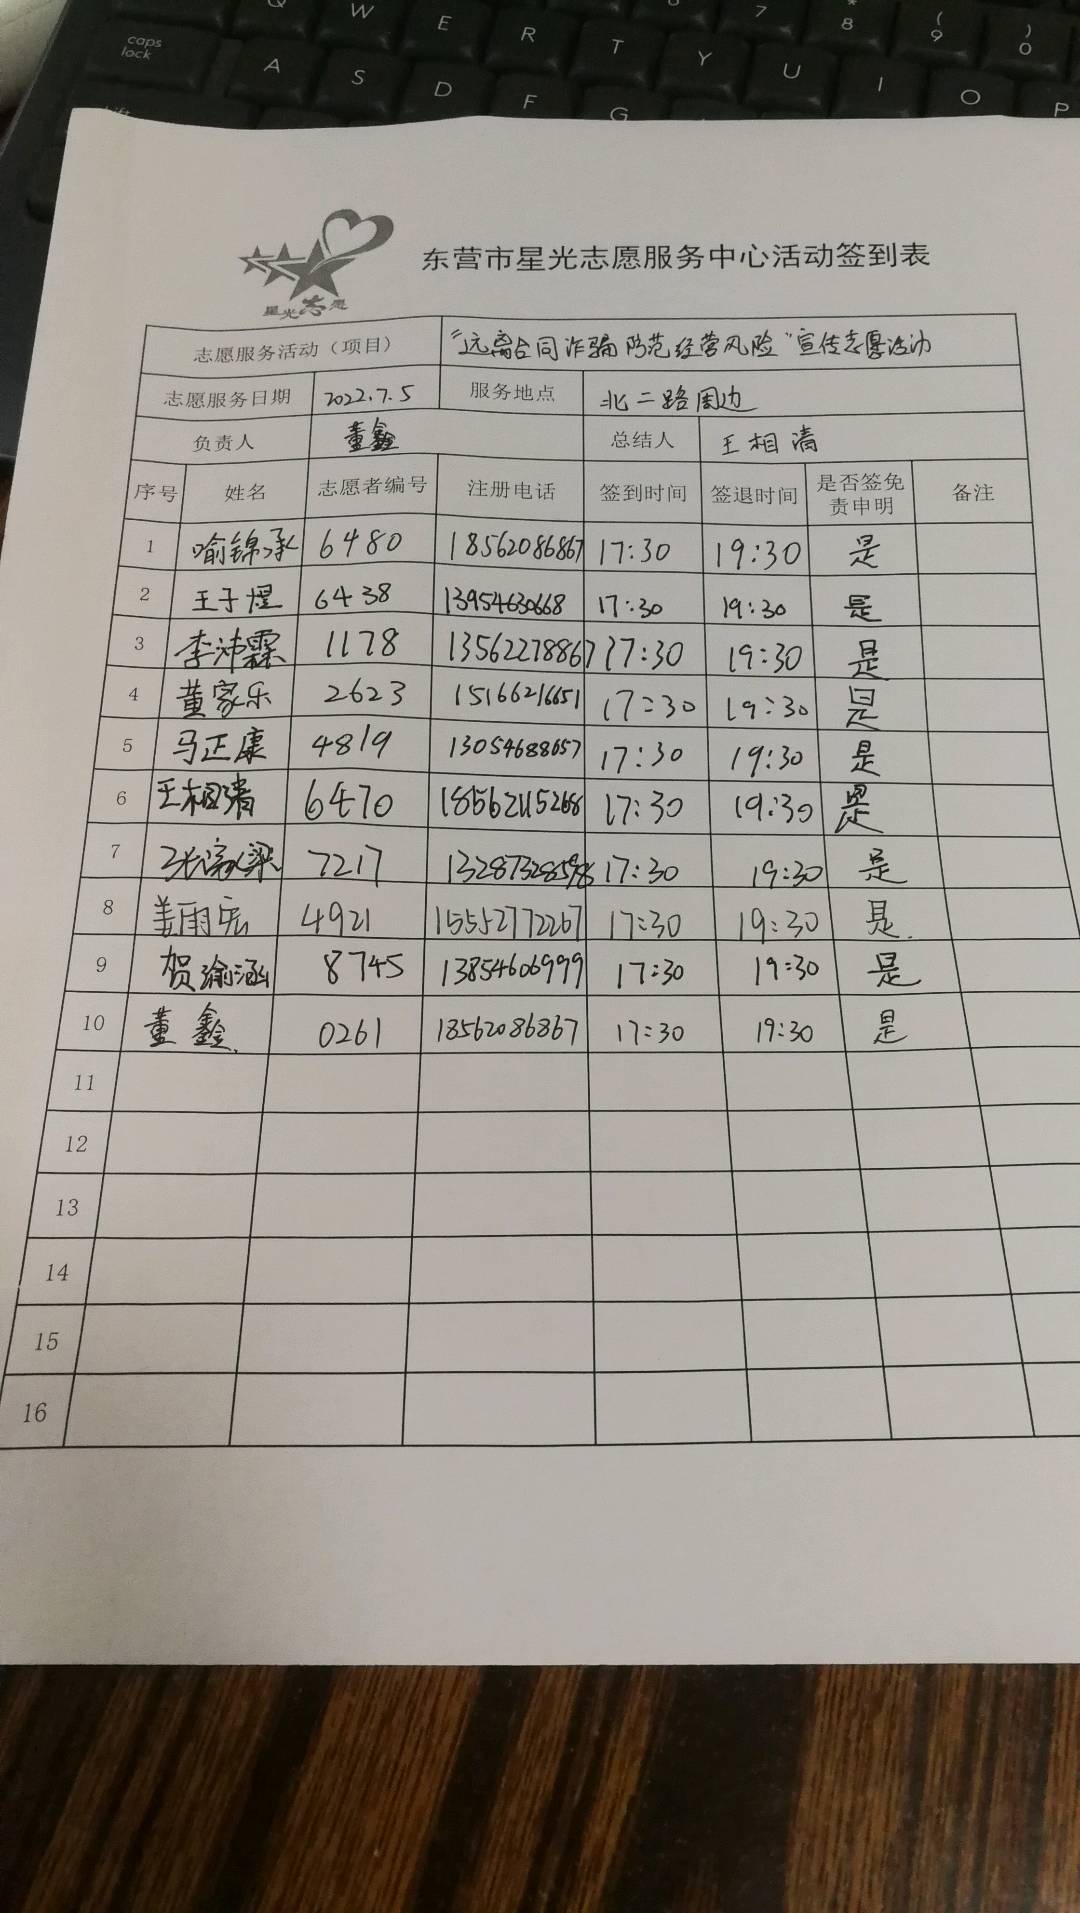 caps lock
Q W E R T Y U I O P
A S D F G
7 * 8 ( 9 ) 0
星光志愿
东营市星光志愿服务中心活动签到表
志愿服务活动（项目） “远离合同诈骗 防范经营风险”宣传志愿活动
志愿服务日期 2022.7.5 服务地点 北二路周边
负责人 董鑫 总结人 王相清
序号 姓名 志愿者编号 注册电话 签到时间 签退时间 是否签免责申明 备注
1 喻锦承 6480 18562086867 17:30 19:30 是
2 王子煜 6438 13954630668 17:30 19:30 是
3 李沛霖 1178 13562278867 17:30 19:30 是
4 董家乐 2623 15166216651 17:30 19:30 是
5 马正康 4819 13054688657 17:30 19:30 是
6 王相清 6470 18562115268 17:30 19:30 是
7 张家梁 7217 17:30 19:30 是
8 姜雨宏 4921 15552772267 17:30 19:30 是.
9 贺瑜涵 8745 13854606999 17:30 19:30 是
10 董鑫. 0261 18562086867 17:30 19:30 是
11
12
13
14
15
16